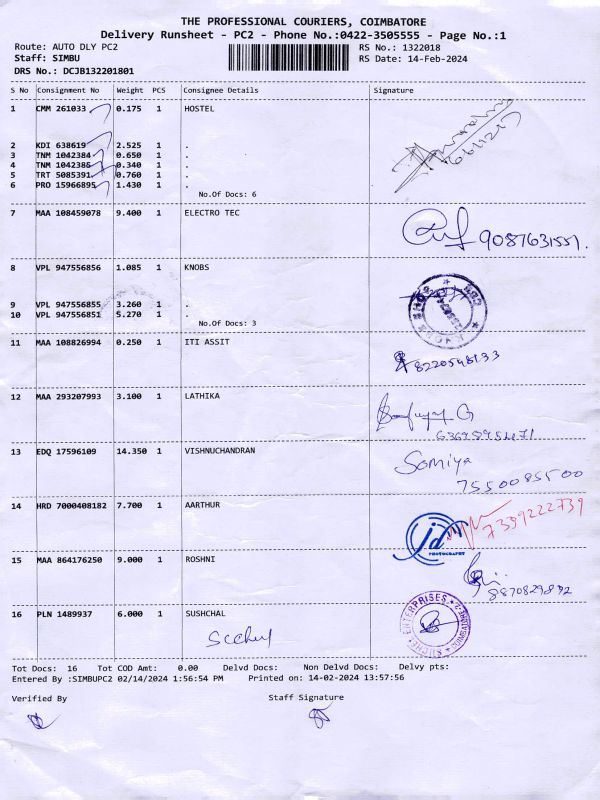 THE PROFESSIONAL COURIERS, COIMBATORE
Delivery Runsheet - PC2 - Phone No.:0422-3505555 - Page No.:1
Route: AUTO DLY PC2 RS No.: 1322018
Staff: SIMBU RS Date: 14-Feb-2024
DRS No.: DCJB132201801
S No Consignment No Weight PCS Consignee Details Signature
1 CMM 261033 0.175 1 HOSTEL
2 KDI 638619 2.525 1 .
3 TNM 1042384 0.650 1 .
4 TNM 1042385 0.340 1 .
5 TRT 5085391 0.760 1 .
6 PRO 15966895 1.430 1 .
No.Of Docs: 6
7 MAA 108459078 9.400 1 ELECTRO TEC
9087631551.
8 VPL 947556856 1.085 1 KNOBS
9 VPL 947556855 3.260 1 .
10 VPL 947556851 5.270 1 .
No.Of Docs: 3
11 MAA 108826994 0.250 1 ITI ASSIT
8220548133
12 MAA 293207993 3.100 1 LATHIKA
13 EDQ 17596109 14.350 1 VISHNUCHANDRAN
Somiya
7550085500
14 HRD 7000408182 7.700 1 AARTHUR
7339222739
jd
PHOTOGRAPHY
15 MAA 864176250 9.000 1 ROSHNI
8870829892
16 PLN 1489937 6.000 1 SUSHCHAL
ENTERPRISES
Tot Docs: 16 Tot COD Amt: 0.00 Delvd Docs: Non Delvd Docs: Delvy pts:
Entered By :SIMBUPC2 02/14/2024 1:56:54 PM Printed on: 14-02-2024 13:57:56
Verified By Staff Signature